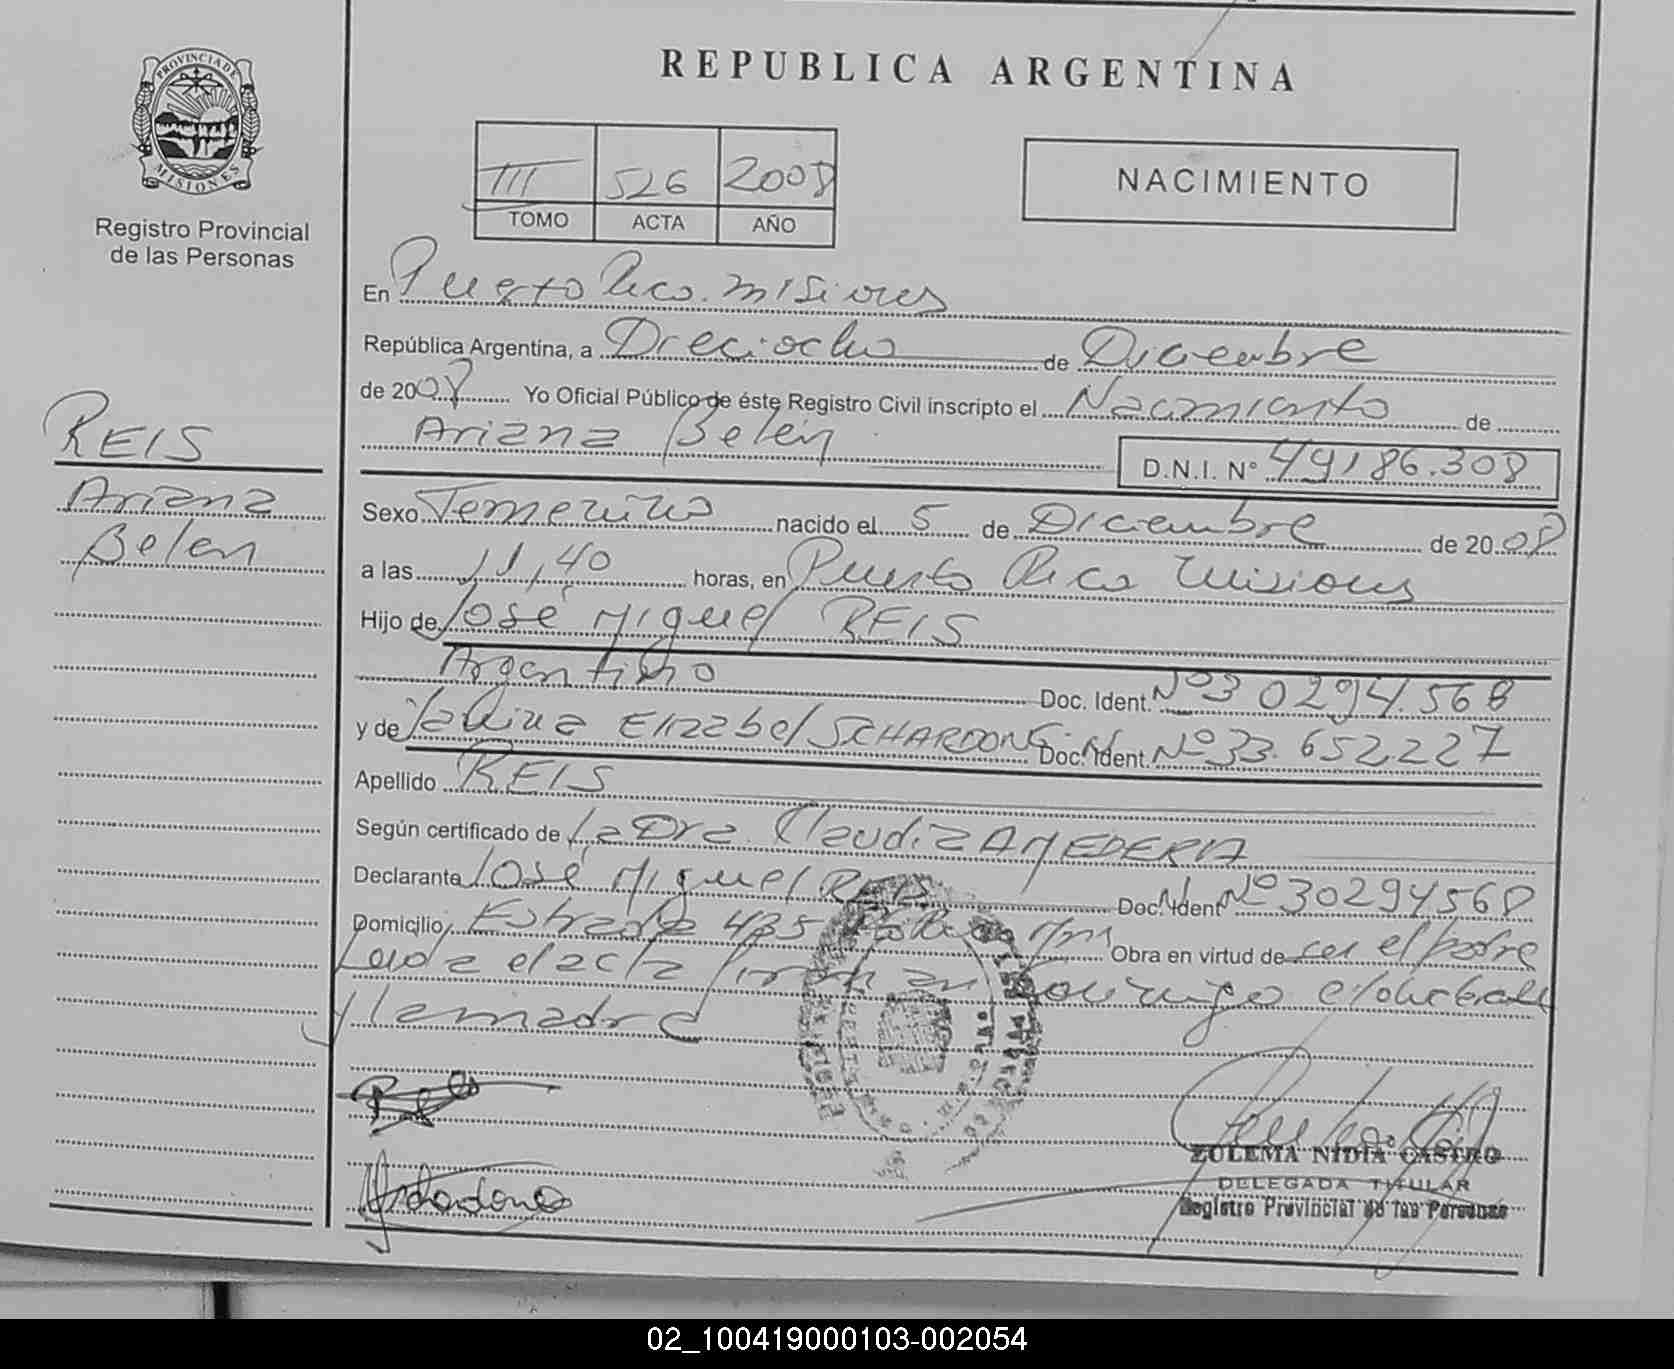 REPUBLICA ARGENTINA
PROVINCIA DE
MISIONES
Registro Provincial
de las Personas
III 526 2008
TOMO ACTA AÑO
NACIMIENTO
En Puerto Rico. Misiones
República Argentina, a Dieciocho de Diciembre
de 2008 Yo Oficial Público de éste Registro Civil inscripto el Nacimiento de
Ariana Belén
D.N.I. Nº 49186.308
REIS
Ariana
Belen
Sexo Femenino nacido el 5 de Diciembre de 2008
a las 11,40 horas, en Puerto Rico Misiones
Hijo de José Miguel REIS
Argentino Doc. Ident. Nº 30294.568
y de Elizabel SCHARDONG Doc. Ident. Nº 33.652.227
Apellido REIS
Según certificado de La Dra. Claudia
Declarante José Miguel REIS Doc. Ident Nº 30294568
Domicilio Estrada 435 Obra en virtud de ser el padre
el acta
y la madre
ZULEMA NIDIA CASTRO
DELEGADA TITULAR
Registro Provincial de las Personas
02_100419000103-002054